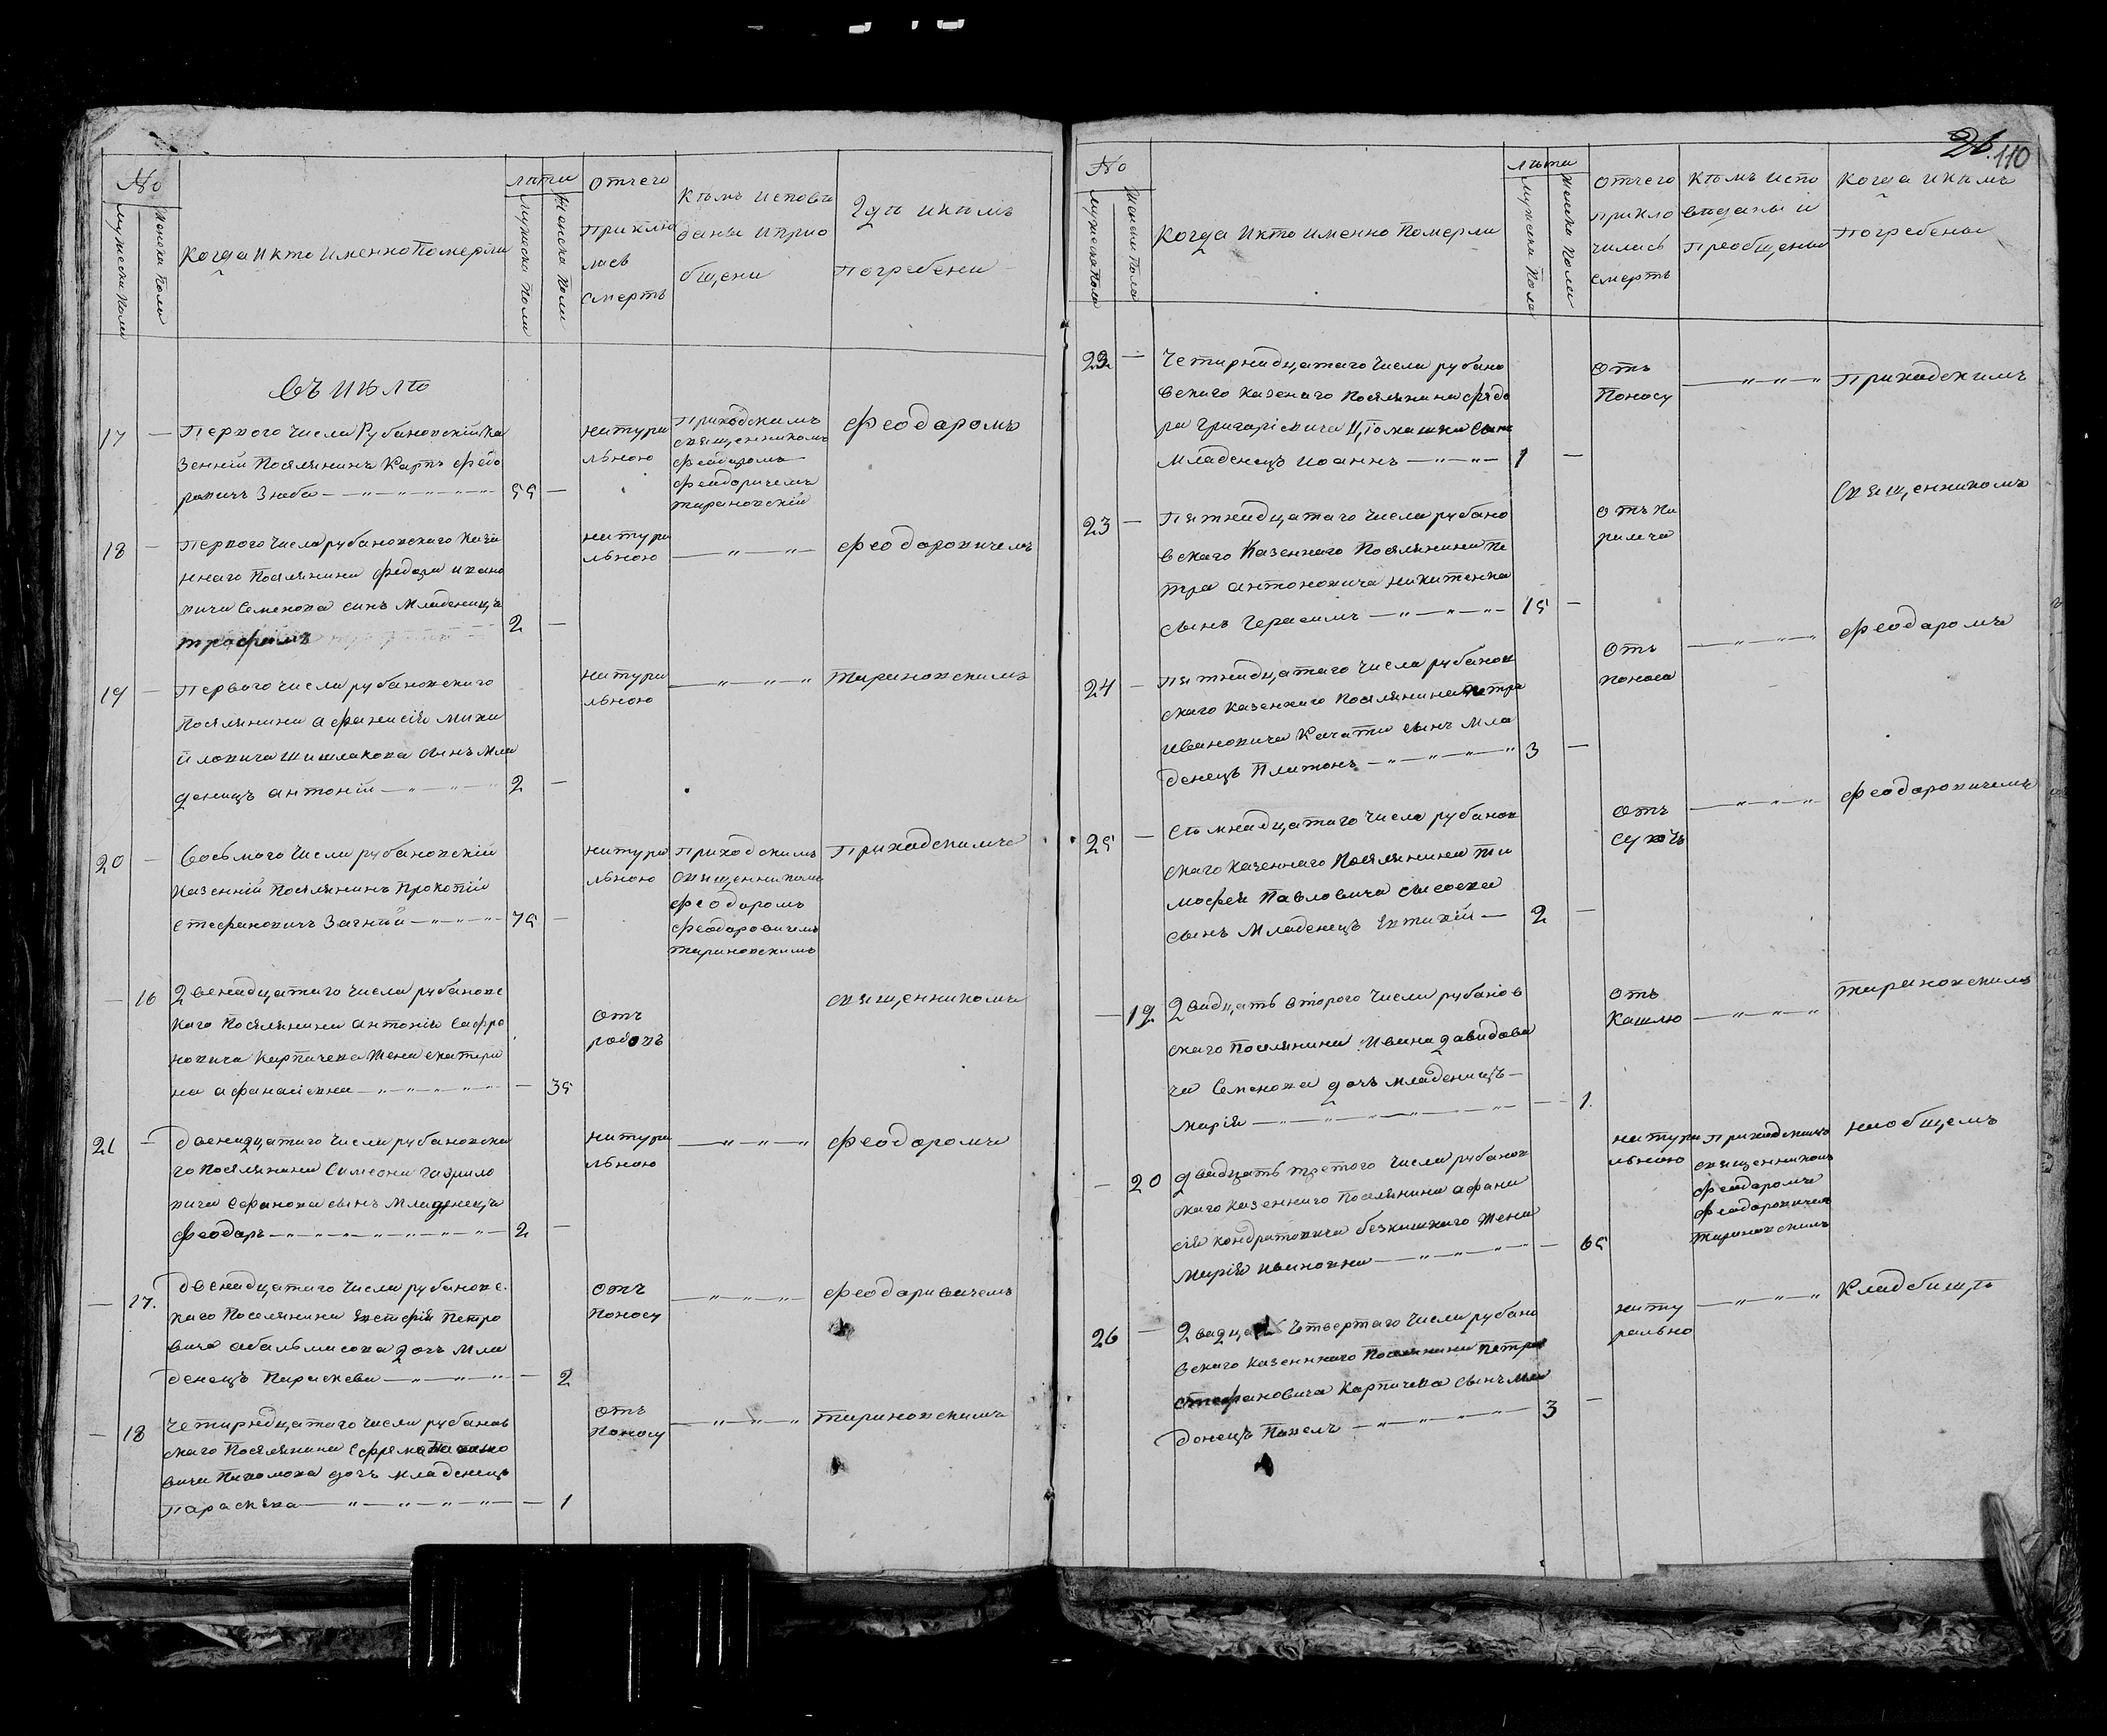 No
мужеска пола
женска пола
Когда и кто именно Померли
лѣта
мужеска пола
женска пола
отчего
приклю
лась
смерть
Кѣмъ исповѣ
даны и прио
бщени
Гдѣ и кѣмъ
погребени
въ июлѣ
17 — Первого числа Рубановскій Ка
зенній Поселянинъ Карпъ Федо
ровичъ Зюба — 55 —
натура
льною
Приходскимъ
священникомъ
Феодоромъ
Феодоричемъ
тарановскій
Феодаромъ
18 — Первого числа рубановскаго казе
ннаго Поселянина Федора ивано
вича Семенова синъ Младенецъ
трофимъ 2 —
натура
льною
— " — " —
Феодоровичемъ
19 — Первого числа рубановскаго
Поселянина афанасія михи
йловича шишлакова синъ мла
денецъ антоній — 2 —
натура
льною
— " — " — "
Тарановскимъ
20 — Восьмого числа рубановскій
казенній Поселянинъ Прокопій
стефановичъ Зачній — 75 —
натура
льною
Приходскимъ
священникомъ
Феодоромъ
Феодаровичемъ
тарановскимъ
Приходскимъ
— 16 Двенадцатаго числа рубановс
каго Поселянина антонія Сафро
новича Карпичева жена екатери
на афанасіевна — — 35
отъ
родовъ
священникомъ
21 — двенадцатаго числа рубановска
го Поселянина Симеона гаврило
вича Сафанова сынъ младенецъ
Феодаръ — 2 —
натура
льною
— " — " — "
Феодоромъ
— 17. двенадцатаго числа рубановс
каго Поселянина Евстафія Петро
вича абальмасова дочъ мла
денецъ Параскева — — 2
отъ
поносу
— " — " — "
Феодаривичемъ
— 18 Четирнадцатаго числа рубанов
скаго Поселянина ефрема
вича Пахомова дочъ младенецъ
Параскева — — 1
отъ
поносу
— " — " — "
тарановскимъ
26. 110
No
мужеска пола
женска пола
Когда и кто именно померли
лѣта
мужеска пола
женска пола
отчего
прикло
чилась
смерть
Кѣмъ испо
веданы и
преобщены
Когда и кѣмъ
погребены
22 — Четирнадцатаго числа рубано
вскаго казеного Поселянина Федо
ра григоріевича сынъ
младенецъ иоаннъ — 1 —
отъ
поносу
— " — " — "
Приходскимъ
Священникомъ
23 — Пятнадцатаго числа рубано
вскаго Казеннаго Поселянина пе
тра антоновича никитенка
сынъ Герасимъ — 15 —
отъ па
ралеча
24 — пятнадцатаго числа рубанов
скаго казеннаго Поселянина петра
ивановича Качати сынъ мла
денецъ Платонъ — 3 —
отъ
поноса
— " — " — "
Феодаромъ
25 — Сѣмнадцатаго числа рубанов
скаго казеннаго Поселянина ти
мофея Павловича сысоева
сынъ Младенецъ Евтихій — 2 —
отъ
сухотъ
— " — " — "
Феодаровичемъ
— 19 Двадцать второго числа рубанов
скаго поселянина Ивана давидови
ча Семенова дочъ младенецъ —
марія — — 1.
отъ
кашлю
— " — " — "
тарановскимъ
— 20 двадцать третого числа рубанов
скаго казеннаго Поселянина афана
сія кондратовича безкишкаго жена
марія ивановна — — 65
натура
льною
Приходскимъ
священникомъ
Феодаромъ
Феодоровичемъ
тарановскимъ
наобщемъ
26 — Двадцать Четвертаго числа рубано
вскаго казеннаго Поселянина петра
стефановича Карпичева сынъ мла
донецъ Павелъ — 3 —
нату
рально
— " — " — "
Кладбищѣ